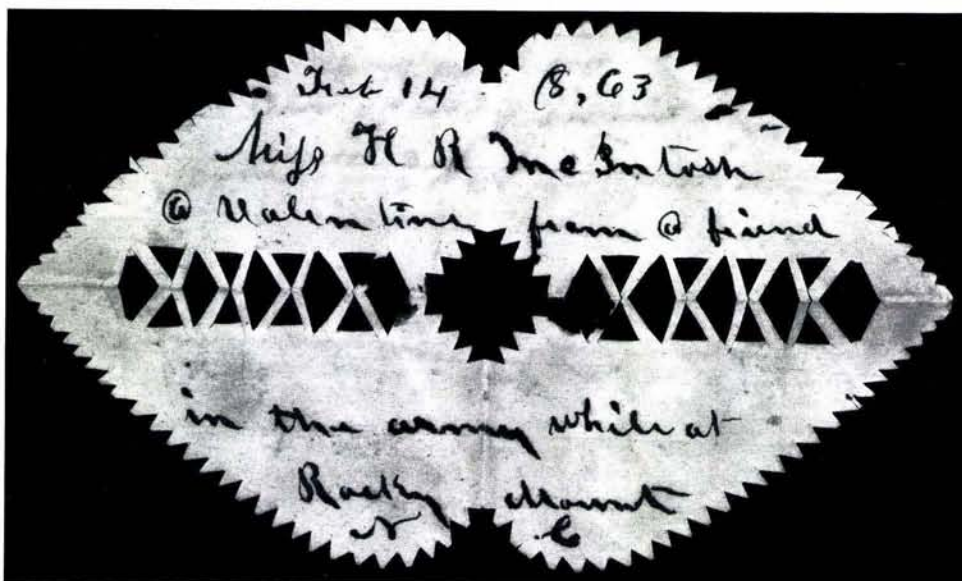 Feb 14 18,63
Miss H R McIntosh
@ Valentine from @ friend
in the army while at
Rocky Mount
N C